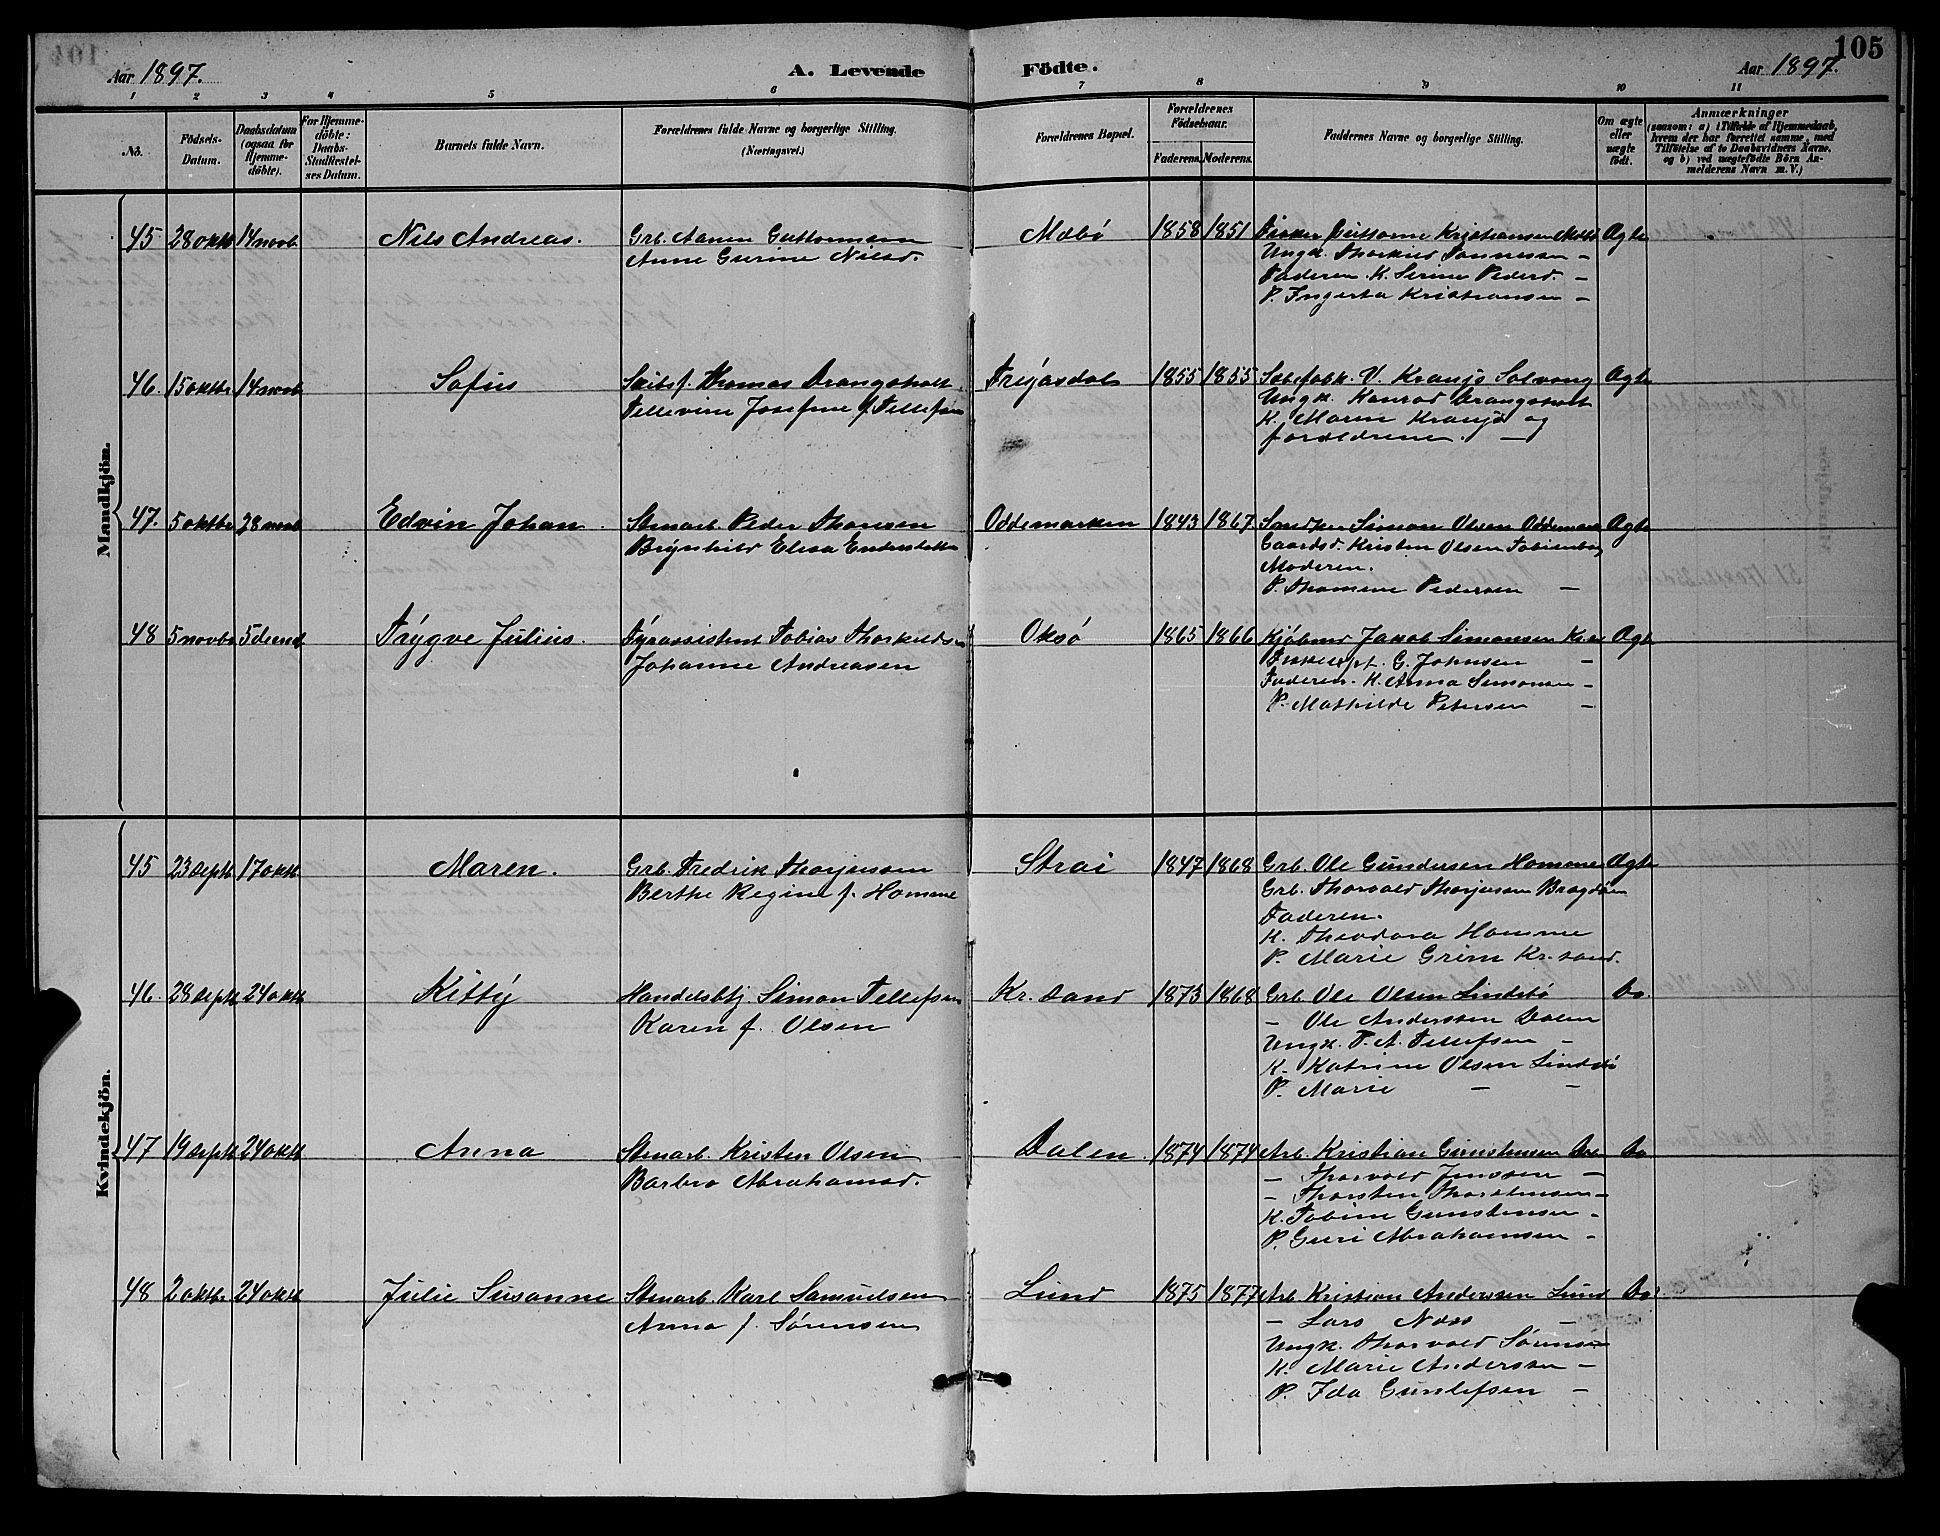 105
Aar 1897. A. Levende Födte. Aar 1897.
1 2 3 4 5 6 7 8 9 10 11
No. Födsels-Datum. Daabsdatum (ogsaa for Hjemme-döbte). For Hjemme-döbte: Daabs-Stadfæstel-ses Datum. Barnets fulde Navn. Forældrenes fulde Navne og borgerlige Stilling. (Næringsvei.) Forældrenes Bopæl. Forældrenes Födselsaar. Faderens. Moderens. Faddernes Navne og borgerlige Stilling. Om ægte eller uægte födt. Anmærkninger (saasom: a) i Tilfælde af Hjemmedaab, hvem der har forrettet samme, med Tilföielse af to Daabsvidners Navne, og b) ved uægtefödte Börn An-melderens Navn m.V.)
Mandkjön.
45 28 oktb 14 novb Nils Andreas. Grb. Aanen Guttormsen Mæbø 1858 1851 Fisker Guttorme Kristiansen Ægte
Anne Gurine Nilsd. Ungk. Thorkild Tønnessen -
Faderen. K. Serine Pedersd. -
P. Ingerta Kristiansen -
46 15 oktbr 14 novb Sofus Skibsf. Thomas Drangsholt Frigasdal 1855 1855 V. Kranjø Solvang Ægte
Tellevine Josefine f. Tellefsen Ungk. Konrad Drangsholt
K. Maren Kranjø og
forældrene. -
47. 5 oktbr 28 novb Edvin Johan. Stenarb. Peder Thorsen Oddemarken 1843 1867 Simon Olsen Oddemark Ægte
Brynhild Elisa Endresdatter Gaardsd. Kristen Olsen Tobienborg
Moderen.
P. Thomine Pedersen -
48 5 novbr 5 decmb Trygve Julius. Fyrassistent Tobias Thorkildsen Oksø 1865 1866 Kjøbmd Jakob Simonsen Kr.sa Ægte
Johanne Andreasen G. Johnsen -
Faderen. K. Anna Simonsen -
P. Mathilde Petersen -
Kvindekjön.
45 23 septb 17 oktb Maren. Grb. Fredrik Thorjussen Strai 1847 1868 Grb. Ole Gundersen Homme Ægte
Berthe Regine f. Homme Grb. Thorvald Thorjussen Bragdøen
Faderen.
K. Theodora Homme
P. Marie Grim Kr.sand.
46. 28 septb 24 oktb Kitty Handelsbtj Simon Tellefsen Kr. sand 1873 1868 Grb. Ole Olsen Lindebø Do.
Karen f. Olsen - Ole Anderssen Dalen
Ungk. T. A. Tellefsen -
K. Katrine Olsen Lindebø
P. Marie - -
47 19 septb 24 oktb Anna Stenarb. Kristen Olsen Dalen. 1874 1874 Arb. Kristian Gunstensen Do
Barbro Abrahamsd. - Thorvald Jenssen -
- Thorsten Thorstensen -
K. Tobine Gunstensen -
P. Guri Abrahamsen -
48 2 oktbr. 24 oktb Julie Susanne Stenarb. Karl Samuelsen Lund 1875 1877 Arb. Kristian Anderssen Lund Do.
Anna f. Sørensen - Lars Næss -
Ungk. Thorvald Sørensen
K. Marie Anderssen -
P. Ida Gunlefsen -